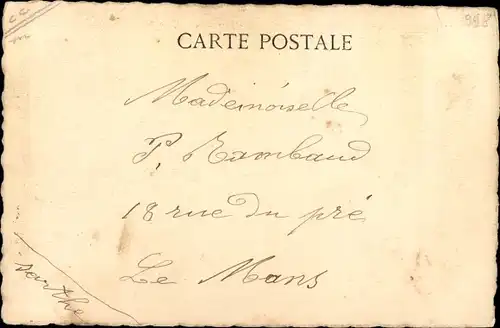 CARTE POSTALE
398
Mademoiselle
P. Rambaud
18 rue du pré
Le Mans
Sarthe